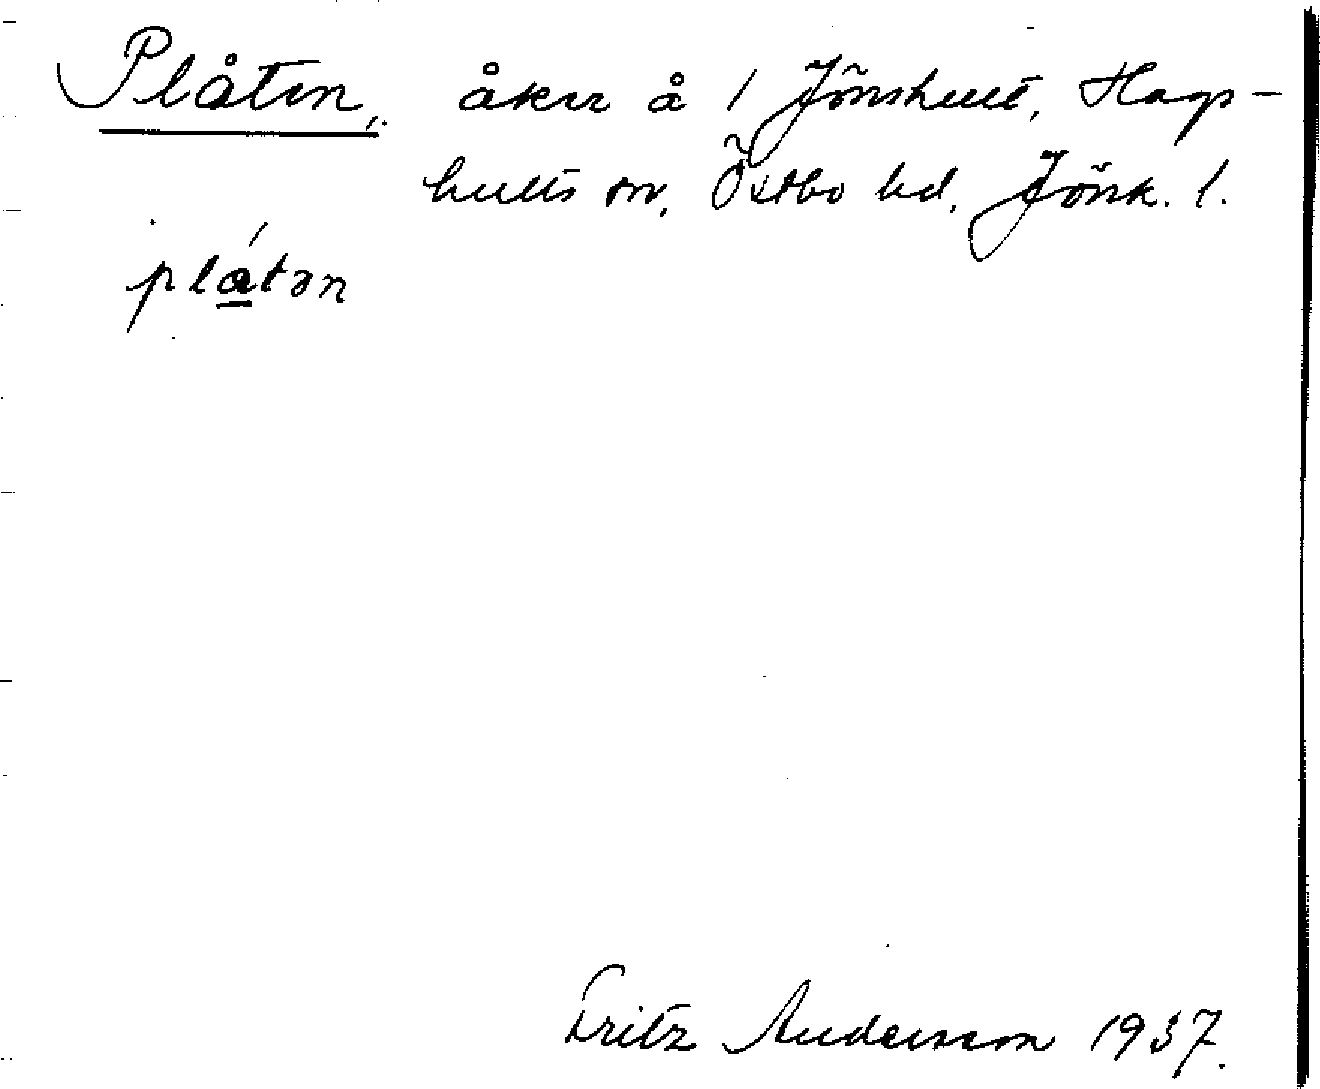 Plåten, åker å 1 Jönshult, Hags-
hults sn, Östbo hd, Jönk. l.
plá̱tən
Fritz Andersson 1937.